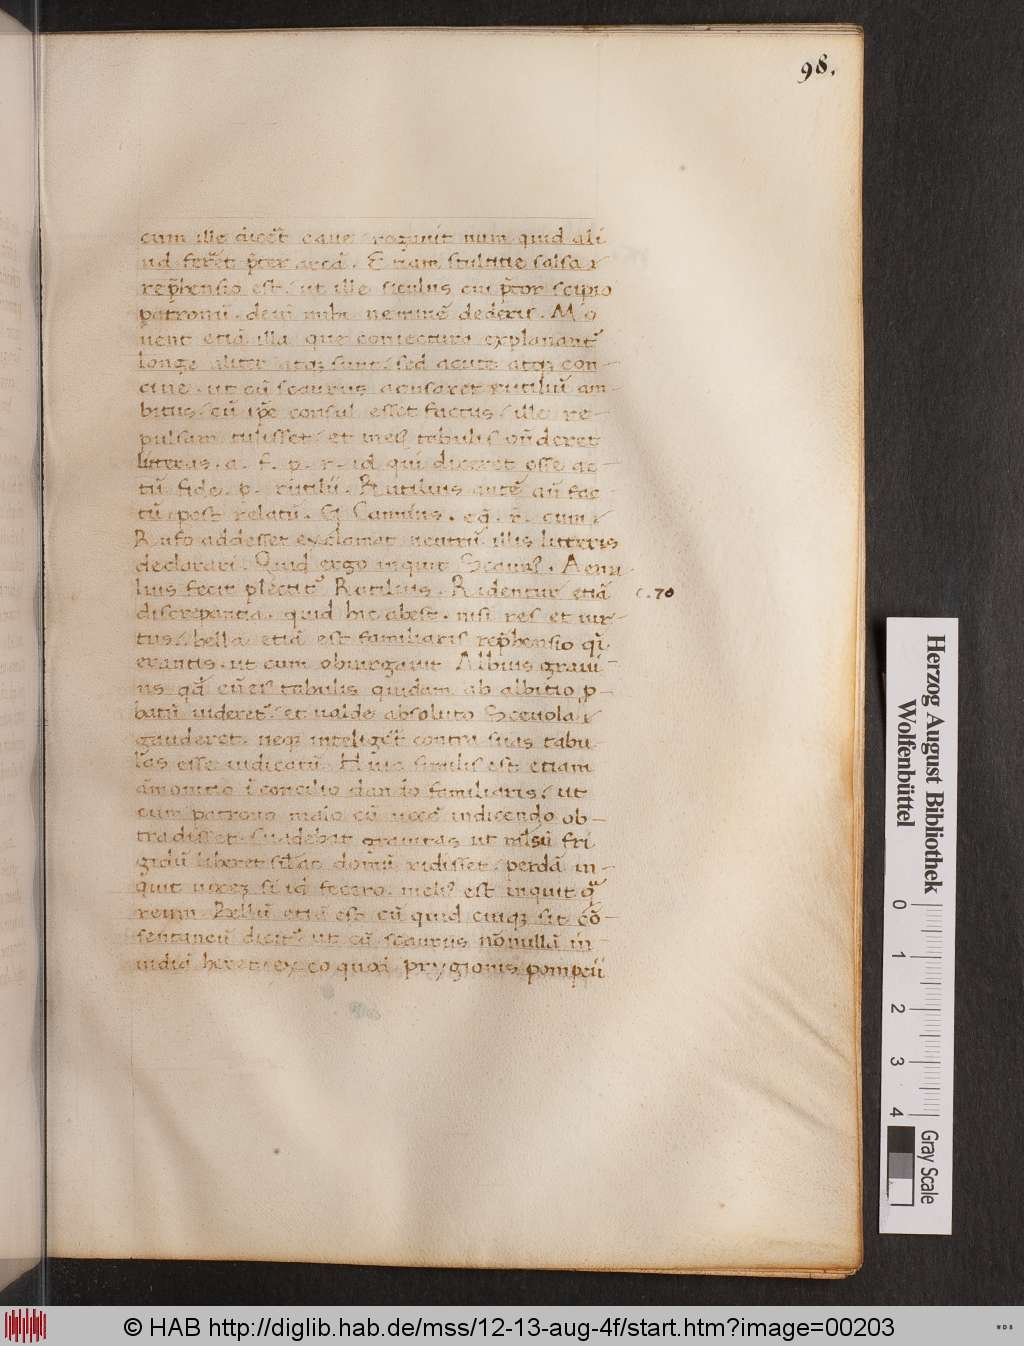 98.
cum ille dicet̄ caue rogauit num quid ali
ud ferret p̄ter arcā. Etiam stultitie salsa
rep̄hensio est / ut ille siculus cui p̄tor scipio
patronū. dedit mihi neminē dederis. Mo
uent etiā illa que coniectura explanant᷑
longe aliter atq; sunt / sed acute atq; con-
cine. ut cū scaurus acusaret rutiliū am-
bitus / cū ip̄e consul esset factus / ille re-
pulsam tulisset / et in eis tabulis oñderet
litteras. a. f. p. r. id qui diceret esse ac-
tū fide. p. rutilii. Rutilius ante aū fac-
tū post relatū. G Cannius. eq̄. r̄. cum
Rufo addesset exclamat neutrū illis litteris
declarari. Quid ergo inquit Scaurus. Aemi
lius fecit plectit᷑ Rutilius. Ridentur etiā
c. 70
discrepantia. quid hic abest. nisi res et uir-
tus / bella etiā est familiaris rep̄hensio q̄
erantis. ut cum obiurgauit Albius grani-
us qđ cū eis tabulis quidam ab albitio p-
batū uideret᷑ / et ualde absoluto Sceuola
gauderet. neq; inteligeret contra suas tabu
las esse iudicatū. Huic similis est etiam
āmonitio ī concilio dando familiaris / ut
cum patrono malo cū uocē indicendo ob-
tradisset. suadebat granius ut mulsū fri
gidū biberet sil̄ ac domū redisset. perdā in-
quit uocez si id fecero. melius est inquit q̄
reum. Bellū etiā est cū quid cuiq; sit cō-
sentaneū dicit᷑ ut cū scaurus nōnullā in
uidiā heret / ex eo quod prygionis pompeii
Herzog August Bibliothek
Wolfenbüttel
0 1 2 3 4
Gray Scale
© HAB http://diglib.hab.de/mss/12-13-aug-4f/start.htm?image=00203
WDB